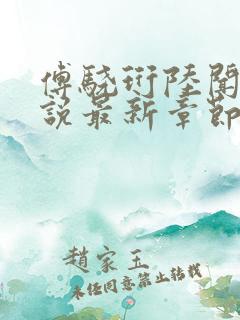 傅驍珩陸闓
說最新章節
趙家玉
未經同意禁止轉載